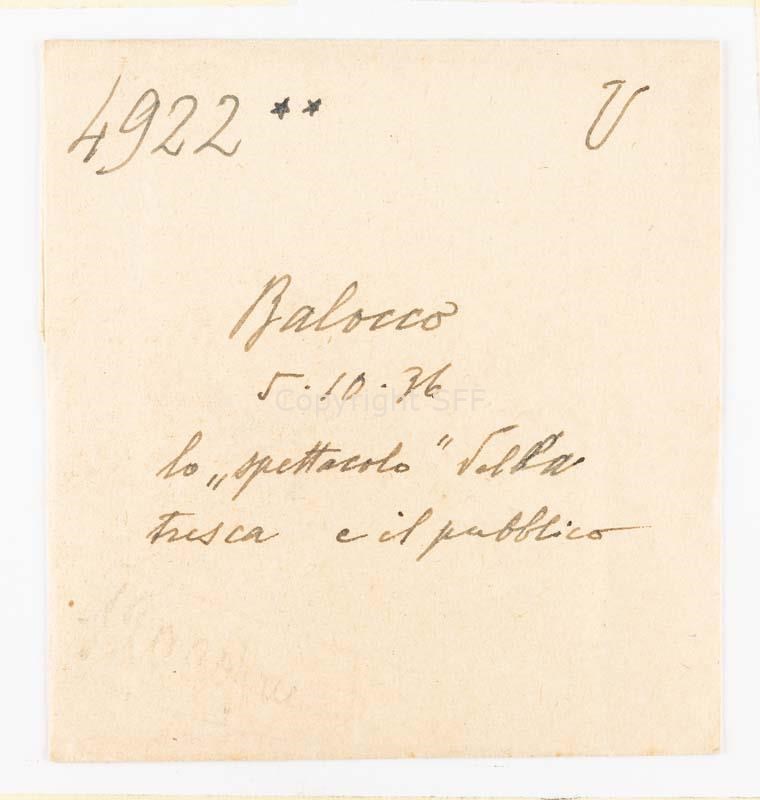 4922 ** U
Balocco
5.10.36
Copyright SFF
lo „spettacolo" della
tresca e il pubblico